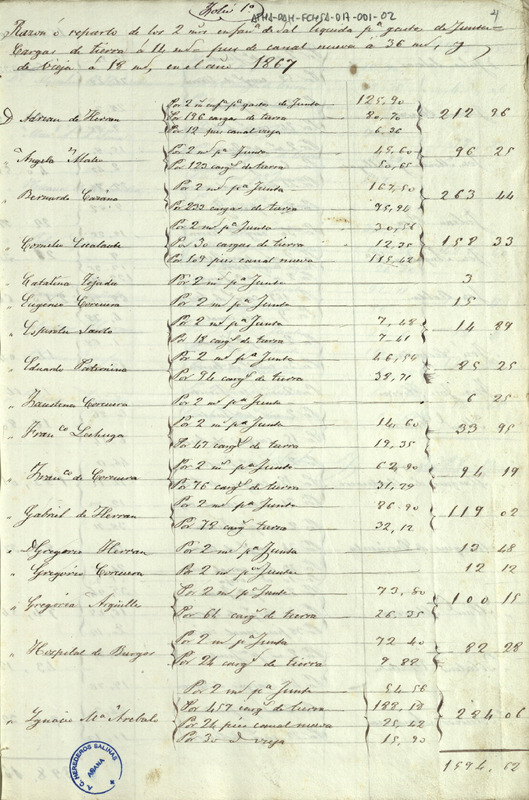 Folio 1º
APHA-00H-FCH54-017-001-02
Razon ó reparto de los 2 mrs en fanª de sal liquida pª gastos de Junta
Cargas de tierra á 14 mrs pies de canal nueva á 36 mrs, y
de vieja á 18 mrs, en el año 1867
Por 2 m en fª pª gastos de Junta 125,90
D Adrian de Herran Por 196 cargas de tierra 80,70 212 96
Por 12 pies canal vieja 6,36
Por 2 mrs pª Junta 45,60
Angela Mateo Por 123 cargs de tierra 50,65 96 25
Por 2 mrs pª Junta 167,50
Bernardo Por 233 cargas de tierra 95,94 263 44
Por 2 mrs pª Junta 30,56
Cornelio Escalante Por 30 cargas de tierra 12,35 158 33
Por 109 pies canal nueva 115,42
Catalina Tejada Por 2 mrs pª Junta 3
Eugenio Corcuera Por 2 mrs pª Junta 15
Por 2 mrs pª Junta 7,48
Santo Por 18 cargs de tierra 7,41 14 89
Por 2 mrs pª Junta 46,54
Eduardo Paternina Por 94 cargs de tierra 38,71 85 25
Faustina Corcuera Por 2 mrs pª Junta 6 25
Por 2 mrs pª Junta 14,60
Franco Lechuga Por 47 cargs de tierra 19,35 33 95
Por 2 mrs pª Junta 62,90
Franco de Corcuera Por 76 cargs de tierra 31,29 94 19
Por 2 mrs pª Junta 86,90
Gabriel de Herran Por 78 cargs tierra 32,12 119 02
D Gregorio Herran Por 2 mrs pª Junta 13 48
Gregorio Corcuera Por 2 mrs por Junta 12 12
Por 2 mrs pª Junta 73,80
Gregoria Argüelle Por 64 cargs de tierra 26,35 100 15
Por 2 mrs pª Junta 72,40
Hospital de Burgos Por 24 cargs de tierra 9,88 82 28
Por 2 mrs pª Junta 54,56
Por 457 cargs de tierra 188,18
Ignacio Mª Arebalo Por 24 pies canal nueva 25,42 284 06
Por 30 de vieja 15,90
1594,62
A.C. HEREDEROS SALINAS
AÑANA